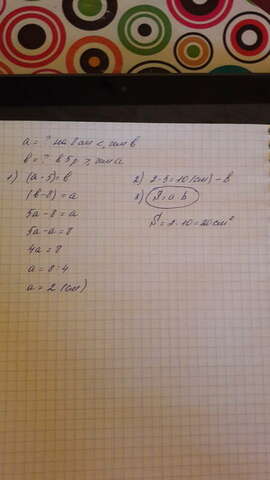 a = ? на 8 см <, чем b
b = ? в 5 р >, чем a
1) (a · 5) = b
(b - 8) = a
5a - 8 = a
5a - a = 8
4a = 8
a = 8 : 4
a = 2 (см)
2) 2 · 5 = 10 (см) - b
3) S = a · b
S = 2 · 10 = 20 см²